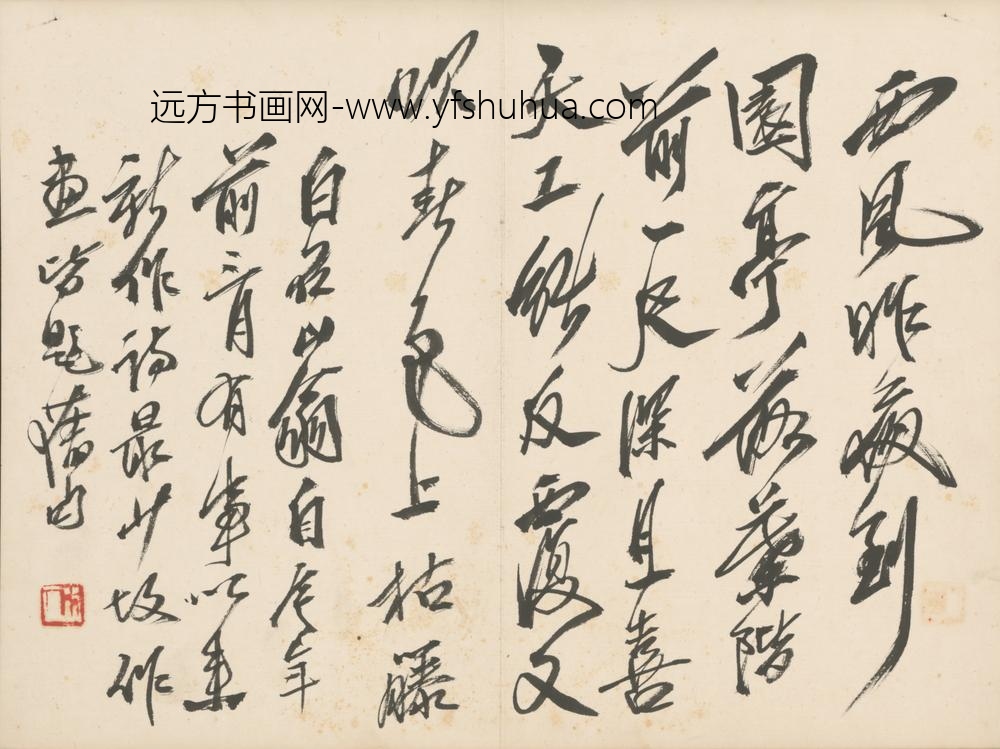 西風昨夜到
園亭落葉階
前一尺深且喜
天工能反覆又
吹春色上枯藤
白石山翁自年
前三月有事以来
新作詩最少故作
畫皆題舊句
远方书画网-www.yfshuhua.com